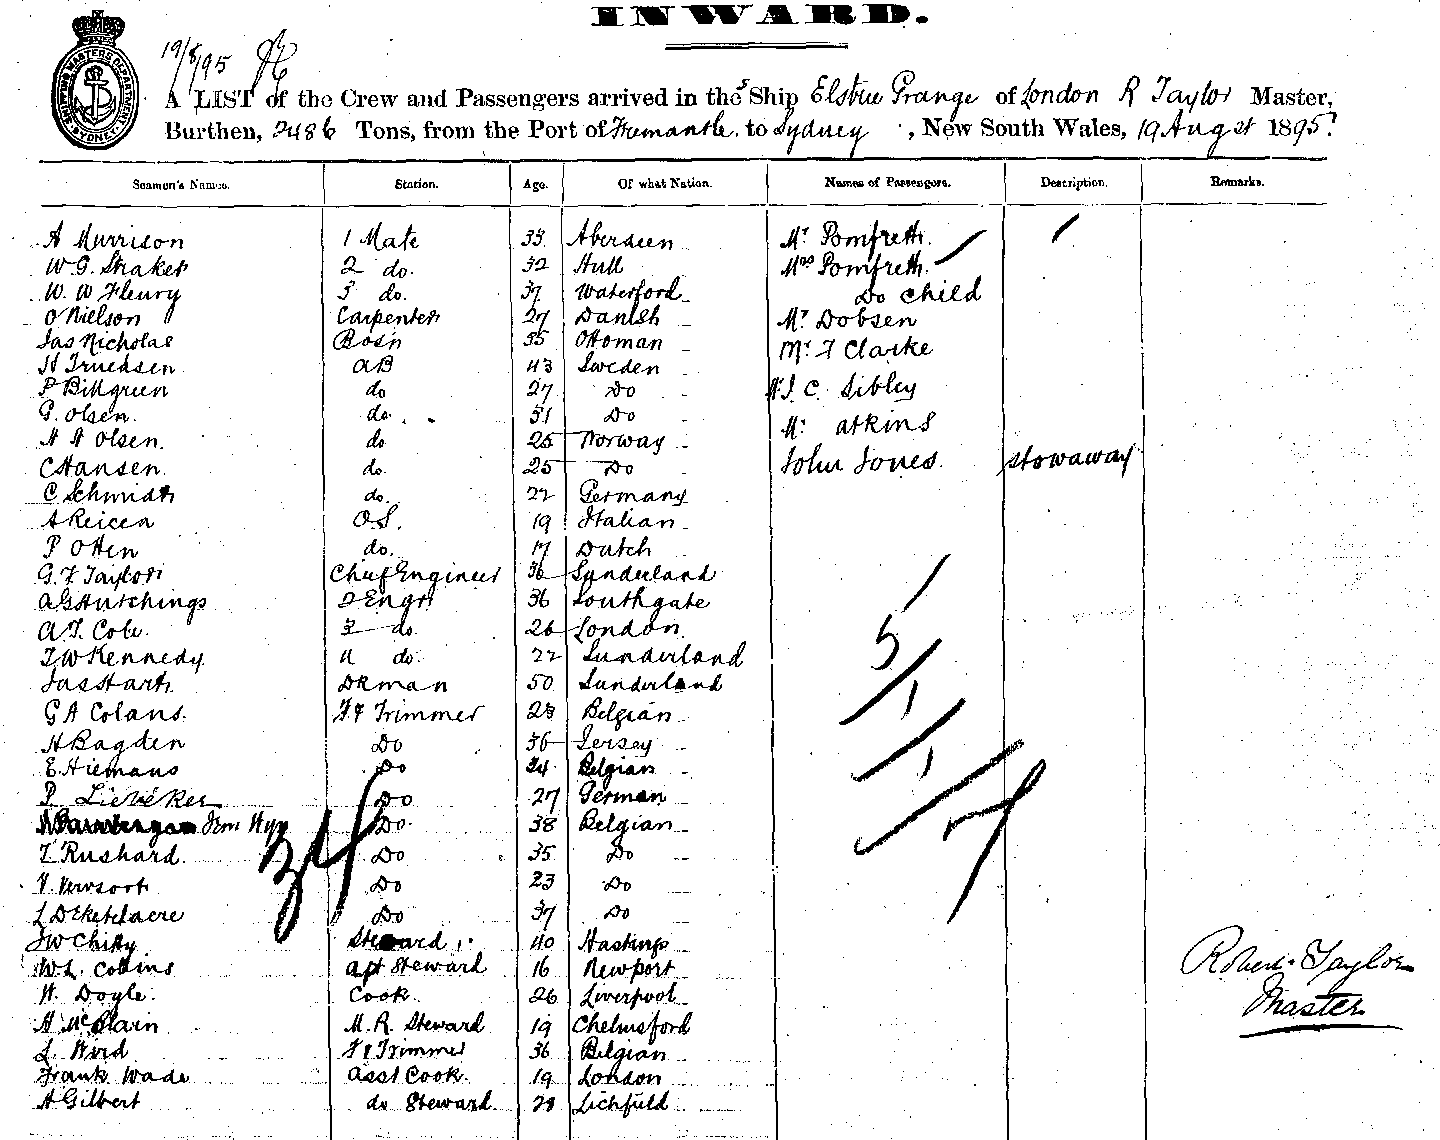 INWARD.
SHIPPING MASTERS DEPARTMENT SYDNEY
19/8/95
A LIST of the Crew and Passengers arrived in the S Ship Elsbue Grange of London R Taylor Master,
Burthen, 2486 Tons, from the Port of Fremantle. to Sydney , New South Wales, 19 Augst 1895.
Seamen's Names. Station. Age. Of what Nation. Names of Passengers. Description. Remarks.
A Murrison 1 Mate 33 Aberdeen Mr Pomfrett.
W.G. Straker 2 do. 32 Hull Mrs Pomfrett.
W. W Fleury 3 do. 37 Waterford Do Child
O Nielson Carpenter 27 Danish Mr Dobsen
Jas Nicholas Bosn 35 Ottoman Mr F Clarke
H Truedsen AB 43 Sweden
P Billgreen do 27 Do C. Sibley
G. Olsen. do. 31 Do
A A Olsen. do 25 Norway Mr Atkins
C Hansen. do. 25 Do John Jones. Stowaway
C Schmidt do. 22 Germany
A Reicea O.S. 19 Italian
P Otten do. 17 Dutch
G. F Taylor Chief Engineer 36 Sunderland
A G Hutchings 2 Engr 36 Southgate
A. F. Cole. 3 do. 26 London.
F W Kennedy. 4 do. 22 Sunderland
Jas Hart. Dkman 50 Sunderland
G A Colans. F & Trimmer 28 Belgian
H Bagden Do 36 Jersey
E. Hiemans Do 24 Belgian
P Liebeker Do 27 German
Do. 38 Belgian
F Rushard. Do 35 Do
V Vervoort Do 23 Do
L Deketelaere Do 37 Do
J W Chitty Steward 40 Hastings
W L. Collins apt Steward 16 Newport
W. Doyle. Cook. 26 Liverpool
A McBlain M. R. Steward 19 Chelmsford
L. Wird F & Trimmer 36 Belgian
Frank Wade Asst Cook. 19 London
A Gilbert do Steward. 28 Lichfield
5
1
1
7
34
Robert Taylor
Master